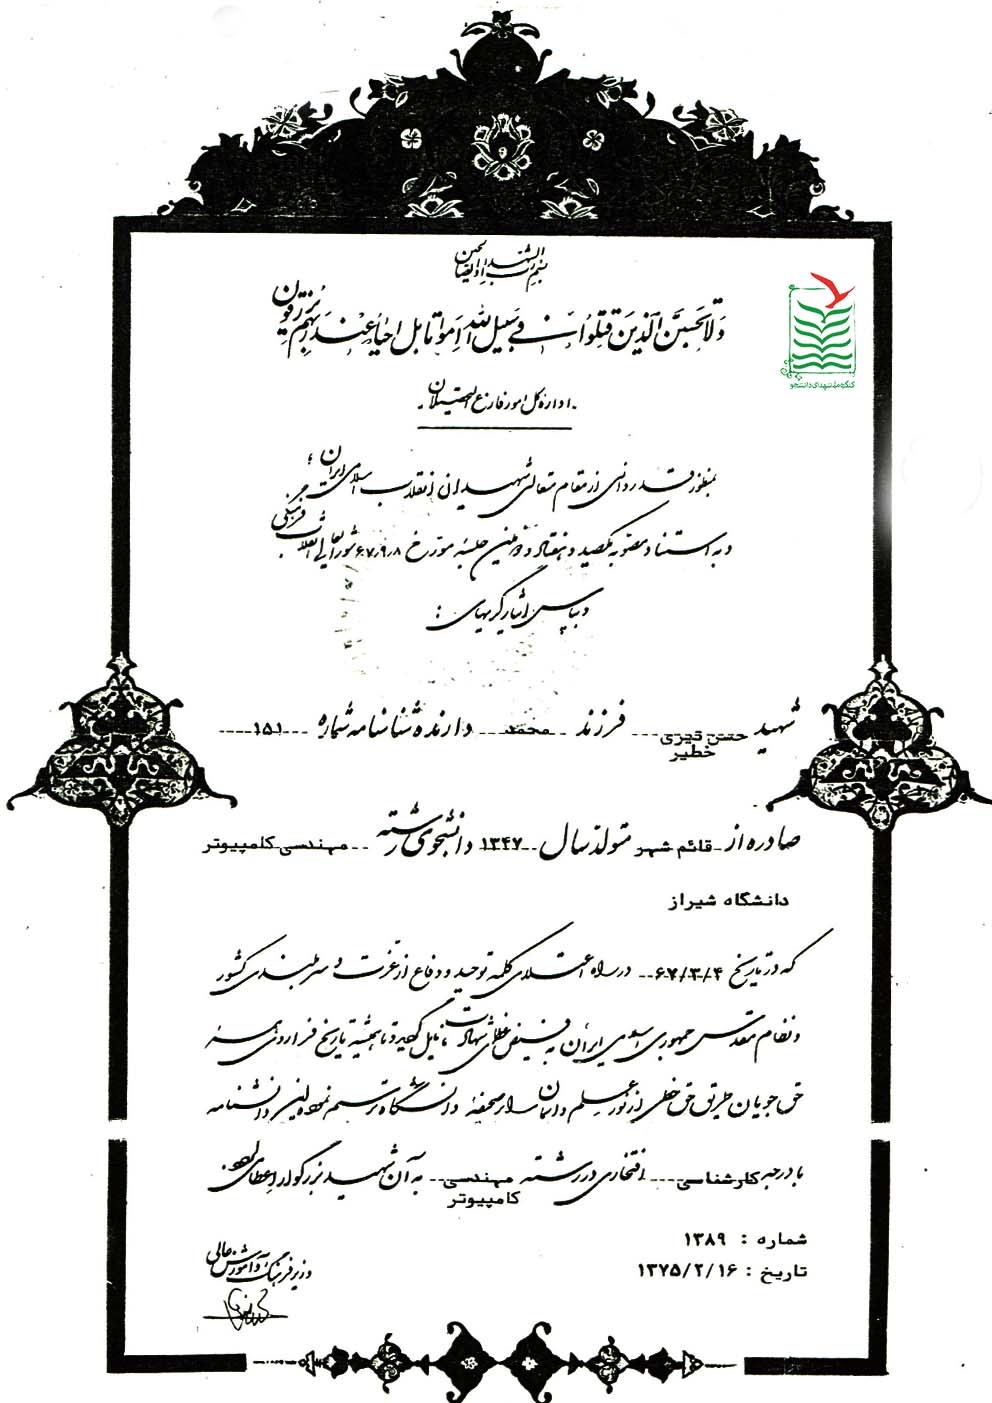 بسم رب الشهداء و الصالحین
ولا تحسبن الذین قتلوا فی سبیل الله امواتا بل احیاء عند ربهم یرزقون
کنگره ملی شهدای دانشجو
اداره کل امور فارغ التحصیلان
بمنظور قدردانی از مقام متعالی شهیدان انقلاب اسلامی ایران؛
و به استناد مصوبه یکصد و هفتاد و دومین جلسه مورخ ۶۷٫۹٫۸ شورایعالی انقلاب فرهنگی
و بپاس ایثارگریهای:
شهید حسن قیصری خطیر فرزند محمد دارنده شناسنامه شماره ۱۵۱
صادره از قائم شهر متولد سال ۱۳۴۷ دانشجوی رشته مهندسی کامپیوتر
دانشگاه شیراز
که در تاریخ ۶۷/۳/۴ در راه اعتلای کلمه توحید و دفاع از عزت و سربلندی کشور
و نظام مقدس جمهوری اسلامی ایران به فیض عظمای شهادت نایل گردید تا همیشه تاریخ فرا روی همه
حق جویان طریق حق خطی از نور علم و ایمان بر صحیفه دانشگاه ترسیم نموده این دانشنامه
با درجه کارشناسی افتخاری در رشته مهندسی کامپیوتر به آن شهید بزرگوار اعطا
شماره : ۱۳۸۹
تاریخ : ۱۳۷۵/۲/۱۶
وزیر فرهنگ و آموزش عالی